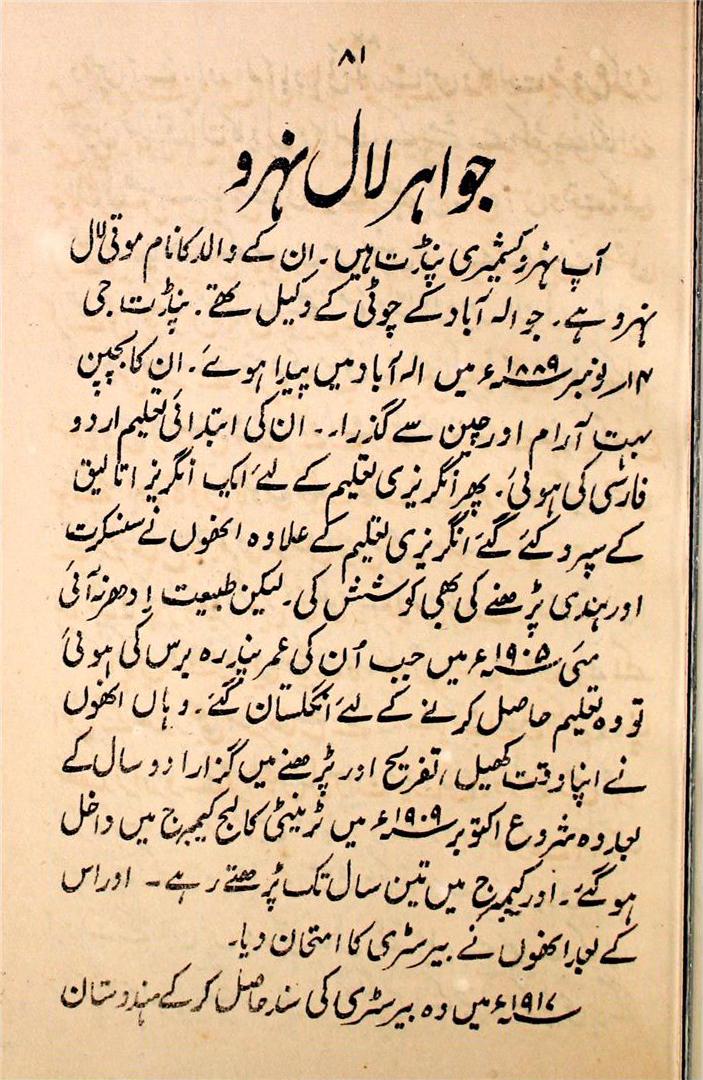 ۸۱
جواہر لال نہرو
آپ نہرو کشمیری پنڈت ہیں۔ ان کے والد کا نام موتی لال
نہرو ہے۔ جو الہ آباد کے چوٹی کے وکیل تھے۔ پنڈت جی
۱۴ر نومبر ۱۸۸۹ء میں الہ آباد میں پیدا ہوئے۔ ان کا بچپن
بہت آرام اور چین سے گذرا۔۔ ان کی ابتدائی تعلیم اردو
فارسی کی ہوئی۔ پھر انگریزی تعلیم کے لئے ایک انگریز اتالیق
کے سپرد کئے گئے انگریزی تعلیم کے علاوہ انھوں نے سنسکرت
اور ہندی پڑھنے کی بھی کوشش کی۔ لیکن طبیعت اِدھر نہ آئی
مئی ۱۹۰۵ء میں جب اُن کی عمر پندرہ برس کی ہوئی
تو وہ تعلیم حاصل کرنے کے لئے انگلستان گئے۔ وہاں انھوں
نے اپنا وقت کھیل، تفریح اور پڑھنے میں گزارا دو سال کے
بعد وہ شروع اکتوبر ۱۹۰۹ء میں ٹرینٹی کالج کیمبرج میں داخل
ہو گئے۔ اور کیمبرج میں تین سال تک پڑھتے رہے۔ اور اس
کے بعد انھوں نے بیرسٹری کا امتحان دیا۔
۱۹۱۷ء میں وہ بیرسٹری کی سند حاصل کر کے ہندوستان